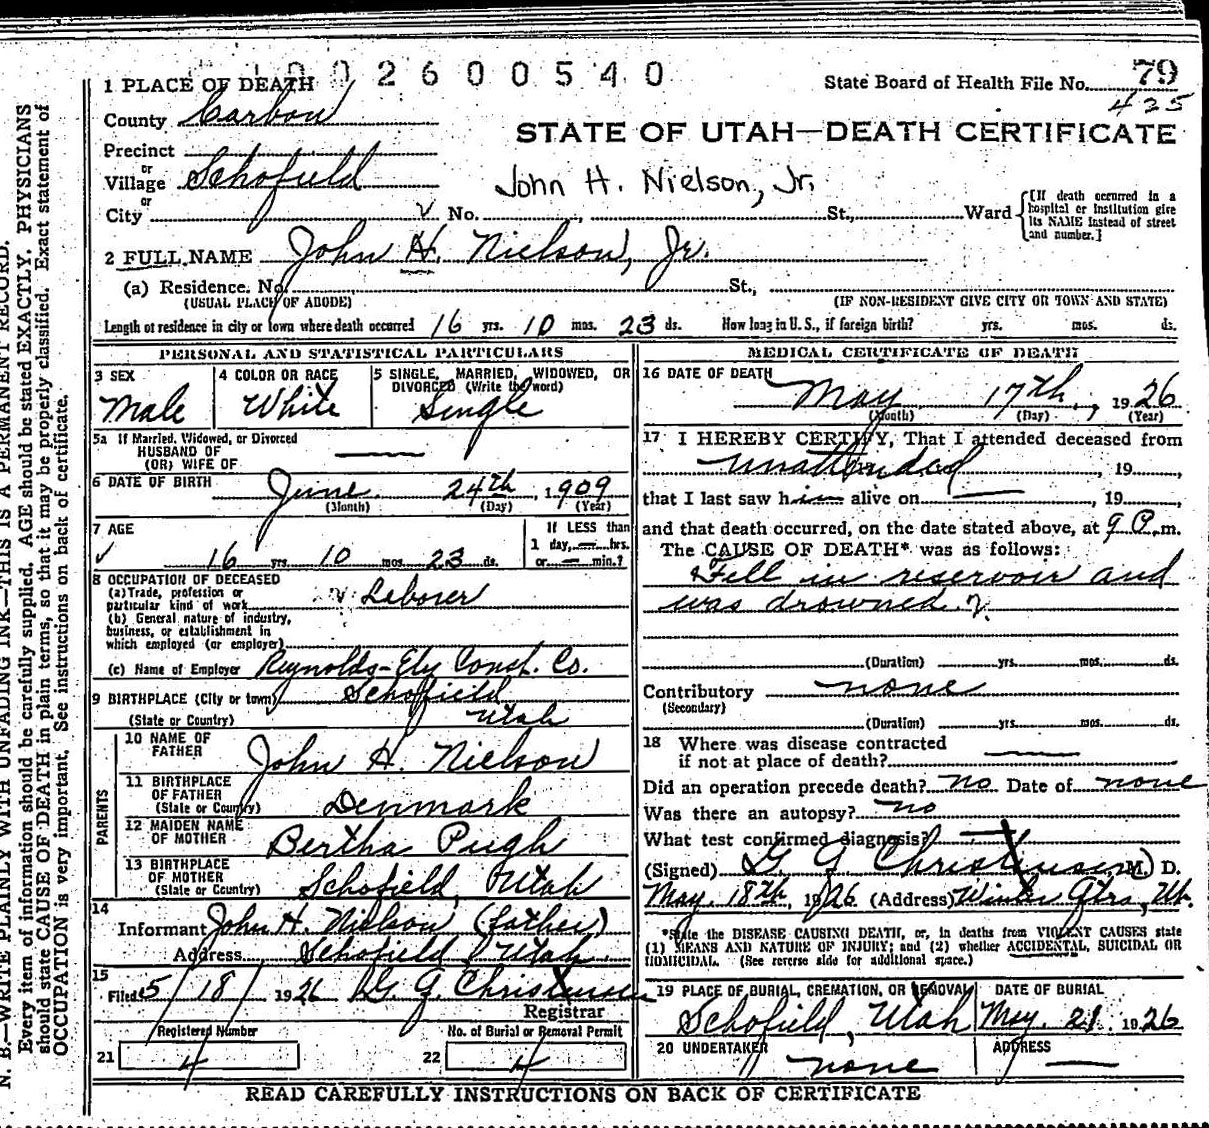 0 0 2 6 0 0 5 4 0
1 PLACE OF DEATH
State Board of Health File No. 79
425
County Carbon
STATE OF UTAH—DEATH CERTIFICATE
Precinct
or
Village Schofield
John H. Nielson, Jr.
or
City No. , St., Ward
{If death occurred in a hospital or institution give its NAME instead of street and number.}
2 FULL NAME John H. Nielson, Jr.
(a) Residence. No. St.,
(USUAL PLACE OF ABODE) (IF NON-RESIDENT GIVE CITY OR TOWN AND STATE)
Length of residence in city or town where death occurred 16 yrs. 10 mos. 23 ds. How long in U. S., if foreign birth? yrs. mos. ds.
PERSONAL AND STATISTICAL PARTICULARS
3 SEX Male
4 COLOR OR RACE White
5 SINGLE, MARRIED, WIDOWED, OR DIVORCED (Write the word) Single
5a If Married, Widowed, or Divorced
HUSBAND OF
(OR) WIFE OF
6 DATE OF BIRTH June 24th, 1909
(Month) (Day) (Year)
7 AGE 16 yrs 10 mos 23 ds.
If LESS than
1 day, — hrs.
or — min.?
8 OCCUPATION OF DECEASED
(a) Trade, profession or
particular kind of work Laborer
(b) General nature of industry,
business, or establishment in
which employed (or employer)
(c) Name of Employer Reynolds-Ely Const. Co.
9 BIRTHPLACE (City or town) Schofield
(State or Country) Utah
PARENTS
10 NAME OF FATHER John H. Nielson
11 BIRTHPLACE OF FATHER (State or Country) Denmark
12 MAIDEN NAME OF MOTHER Bertha Pugh
13 BIRTHPLACE OF MOTHER (State or Country) Schofield, Utah
14
Informant John H. Nielson (father)
Address Schofield Utah.
15
Filed 5/18/ 1926 G. G. Christensen
Registrar
Registered Number
No. of Burial or Removal Permit
21 4
22 4
MEDICAL CERTIFICATE OF DEATH
16 DATE OF DEATH
May 17th, 1926
(Month) (Day) (Year)
17 I HEREBY CERTIFY, That I attended deceased from
unattended , 19 ,
that I last saw him alive on — , 19 ,
and that death occurred, on the date stated above, at 9 P. m.
The CAUSE OF DEATH* was as follows:
Fell in reservoir and
was drowned
(Duration) yrs. mos. ds.
Contributory none
(Secondary)
(Duration) yrs. mos. ds.
18 Where was disease contracted
if not at place of death?
Did an operation precede death? no Date of none
Was there an autopsy? no
What test confirmed diagnosis?
(Signed) G. G. Christensen, M. D.
May. 18th, 1926 (Address) Winter Qtrs, Ut.
*State the DISEASE CAUSING DEATH, or, in deaths from VIOLENT CAUSES state
(1) MEANS AND NATURE OF INJURY; and (2) whether ACCIDENTAL, SUICIDAL OR
HOMICIDAL. (See reverse side for additional space.)
19 PLACE OF BURIAL, CREMATION, OR REMOVAL DATE OF BURIAL
Schofield, Utah May. 21. 1926
20 UNDERTAKER ADDRESS
none —
READ CAREFULLY INSTRUCTIONS ON BACK OF CERTIFICATE
N. B.—WRITE PLAINLY WITH UNFADING INK—THIS IS A PERMANENT RECORD.
Every item of information should be carefully supplied. AGE should be stated EXACTLY. PHYSICIANS
should state CAUSE OF DEATH in plain terms, so that it may be properly classified. Exact statement of
OCCUPATION is very important. See instructions on back of certificate.